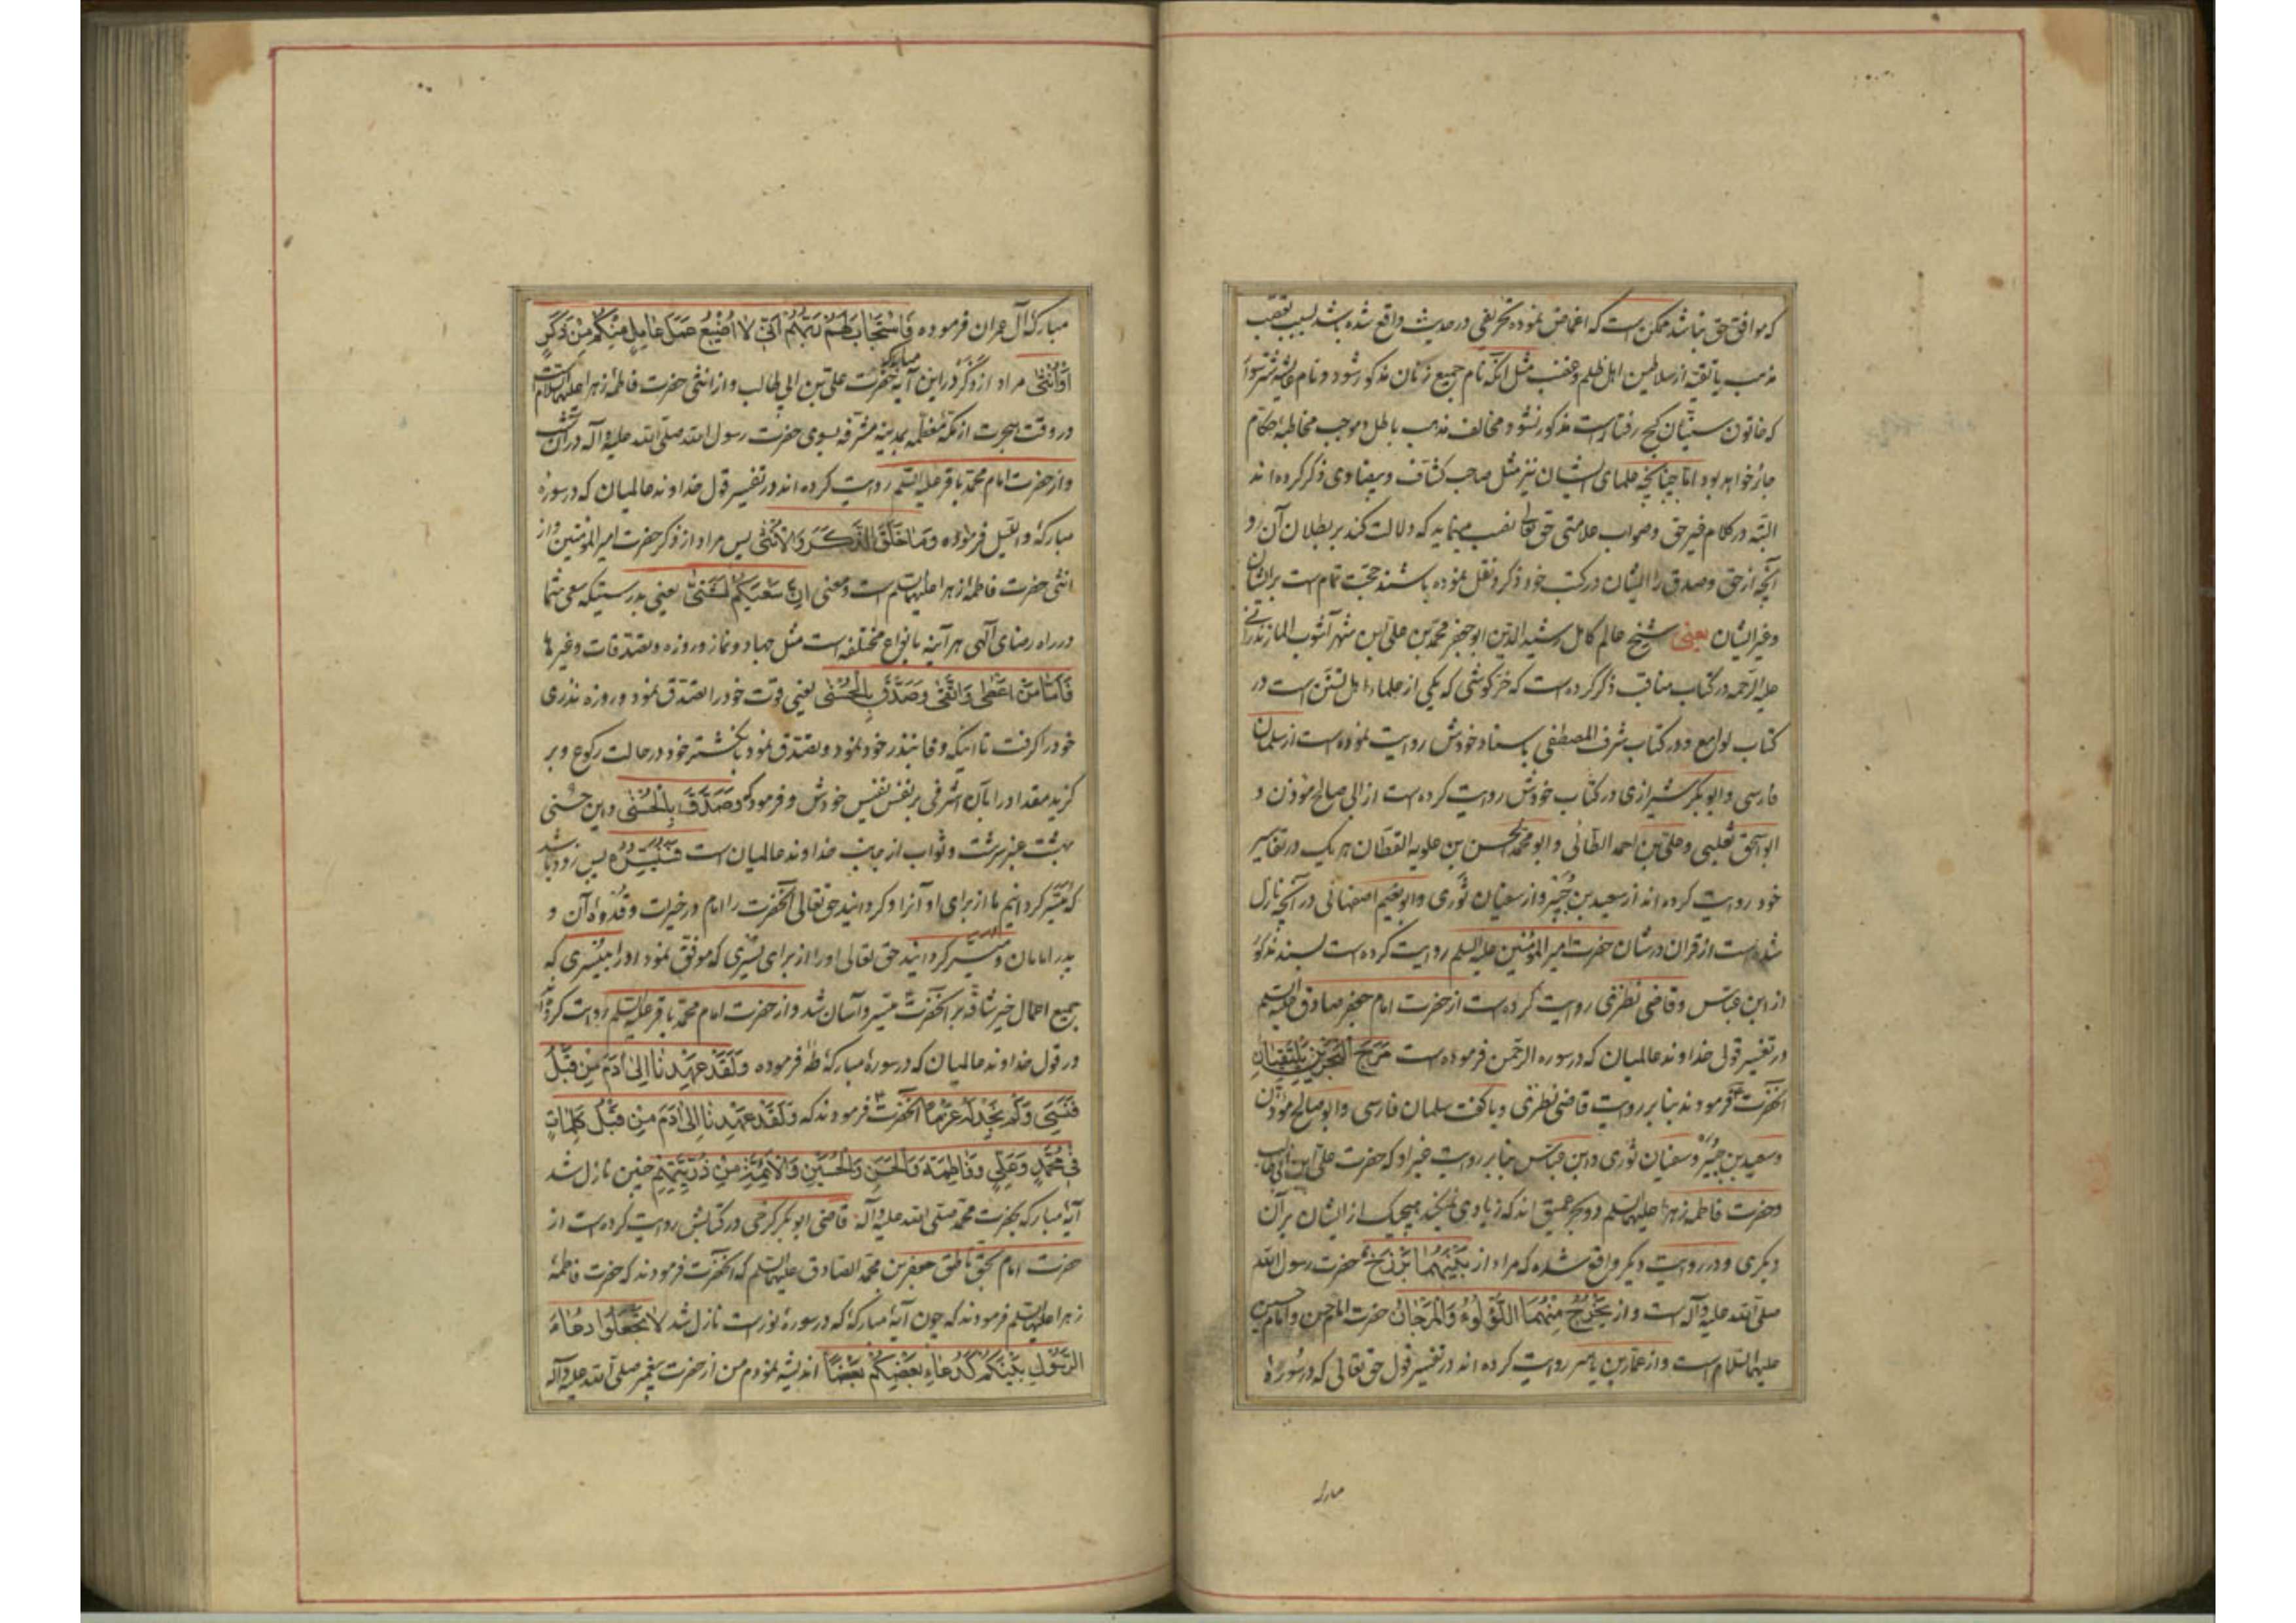 که موافق حق نباشد ممکن است که اغماض نموده تحریفی در حدیث واقع شده باشد بسبب تعصب
مذهب یا تقیه از سلاطین اهل ظلم و غضب مثل آنکه نام جمیع زنان مذکور شود و نام عایشه
که خاتون سنیان کج رفتار است مذکور نشود مخالف مذهب باطل و موجب مخاطبهٔ حکام
جائر خواهد بود اما چنانچه علمای ایشان نیز مثل صاحب کشاف و بیضاوی ذکر کرده اند
البته در کلام غیر حق و صواب علامتی حق تعالی نصب مینماید که دلالت کند بر بطلان آن و
آنچه از حق و صدق را ایشان در کتب خود ذکر و نقل نموده باشند حجت تمام است بر ایشان
و غیر ایشان یعنی شیخ عالم کامل رشید الدین ابو جعفر محمد بن علی بن شهر آشوب المازندرانی
علیه الرحمه در کتاب مناقب ذکر کرده است که خرکوشی که یکی از علماء اهل تسنن است در
کتاب لوامع و در کتاب شرف المصطفی باسناد خودش روایت نموده است از سلمان
فارسی و ابو بکر شیرازی در کتاب خودش روایت کرده است از ابی صالح موذن و
ابو اسحق ثعلبی و علی بن احمد الطائی و ابو محمد الحسن بن علویه القطان هر یک در تفاسیر
خود روایت کرده اند از سعید بن جبیر و از سفیان ثوری و ابو نعیم اصفهانی در آنچه نازل
شده است از قران در شان حضرت امیر المؤمنین علیه السلم روایت کرده است بسند مذکور
از ابن عباس و قاضی نطنزی روایت کرده است از حضرت امام جعفر صادق علیه السلم
در تفسیر قول خداوند عالمیان که در سوره الرحمن فرموده است مَرَجَ الْبَحْرَیْنِ یَلْتَقِیَانِ
آنحضرت فرمودند بنابر روایت قاضی نطنزی و یا گفت سلمان فارسی و ابو صالح موذن
و سعید بن جبیر و سفیان ثوری و ابن عباس بنابر روایت غیر او که حضرت علی ابن ابی طالب
و حضرت فاطمه زهرا علیهما السلم دو بحر عمیق اند که زیادی نمیکند هیچیک از ایشان بر آن
دیگری و در روایت دیگر واقع شده که مراد از بَیْنَهُمَا بَرْزَخٌ حضرت رسول الله
صلی الله علیه و آله است و از یَخْرُجُ مِنْهُمَا اللُّؤْلُوءُ وَالْمَرْجَانُ حضرت امام حسن و امام حسین
علیهما السلام است و از عمار بن یاسر روایت کرده اند در تفسیر قول حق تعالی که در سورهٔ
مبارکهٔ
مبارکهٔ آل عمران فرموده فَاسْتَجَابَ لَهُمْ رَبُّهُمْ اَنّی لَا اُضِیْعُ عَمَلَ عَامِلٍ مِنْکُمْ مِنْ ذَکَرٍ
اَوْ اُنْثٰی مراد از ذکر در این آیه مبارکه حضرت علی بن ابی طالب و از انثی حضرت فاطمهٔ زهرا علیهما السلام است
در وقت هجرت از مکهٔ معظمه بمدینه مشرفه بسوی حضرت رسول الله صلی الله علیه و آله در آن شب
و از حضرت امام محمد باقر علیه السلم روایت کرده اند در تفسیر قول خداوند عالمیان که در سورهٔ
مبارکهٔ واللیل فرموده وَمَا خَلَقَ الذَّکَرَ وَالْاُنْثٰی پس مراد از ذکر حضرت امیر المؤمنین و از
انثی حضرت فاطمهٔ زهرا علیهما السلم است و معنی اِنَّ سَعْیَکُمْ لَشَتّٰی یعنی بدرستیکه سعی شما
در راه رضای آلهی هر آینه بانواع مختلفه است مثل جهاد و نماز و روزه و تصدقات و غیرها
فَاَمَّا مَنْ اَعْطٰی وَاتَّقٰی وَصَدَّقَ بِالْحُسْنٰی یعنی قوت خود را تصدق نمود و روزه نذری
خود را گرفت تا اینکه وفا بنذر خود نمود و تصدق نمود بانکشتر خود در حالت رکوع و بر
کزید مقداد را بآن اشرفی بر نفس نفیس خودش و فرمود که وَصَدَّقَ بِالْحُسْنٰی و این حسنی
بهشت عنبر سرشت و ثواب از جانب خداوند عالمیان است فَسَنُیَسِّرُهُ پس زود باشد
که میسر کردانیم ما از برای او آنرا و کردانید حق تعالی آنحضرت را امام در خیرات و قدوهٔ آن و
پدر امامان و میسر کردانید حق تعالی او را از برای یسری که موفق نمود او را بیسری که
جمیع اعمال خیر شاقه بر آنحضرت میسر و آسان شد و از حضرت امام محمد باقر علیه السلم روایت کرده اند
در قول خداوند عالمیان که در سورهٔ مبارکهٔ طه فرموده وَلَقَدْ عَهِدْنَا اِلٰی اٰدَمَ مِنْ قَبْلُ
فَنَسِیَ وَلَمْ نَجِدْ لَهُ عَزْمًا آنحضرت فرمودند که وَلَقَدْ عَهِدْنَا اِلٰی اٰدَمَ مِنْ قَبْلُ کَلِمَاتٍ
فِی مُحَمَّدٍ وَعَلِیٍّ وَفَاطِمَةَ وَالْحَسَنِ وَالْحُسَیْنِ وَالْاَئِمَّةِ مِنْ ذُرِّیَّتِهِمْ چنین نازل شد
آیهٔ مبارکه بحضرت محمد صلی الله علیه و آله قاضی ابو بکر کرخی در کتابش روایت کرده است از
حضرت امام بحق ناطق جعفر بن محمد الصادق علیهما السلم که آنحضرت فرمودند که حضرت فاطمهٔ
زهرا علیها السلم فرمودند که چون آیهٔ مبارکهٔ که در سورهٔ نور است نازل شد لَا تَجْعَلُوْا دُعَاءَ
الرَّسُوْلِ بَیْنَکُمْ کَدُعَاءِ بَعْضِکُمْ بَعْضًا اندیشه نمودم من از حضرت پیغمبر صلی الله علیه و آله